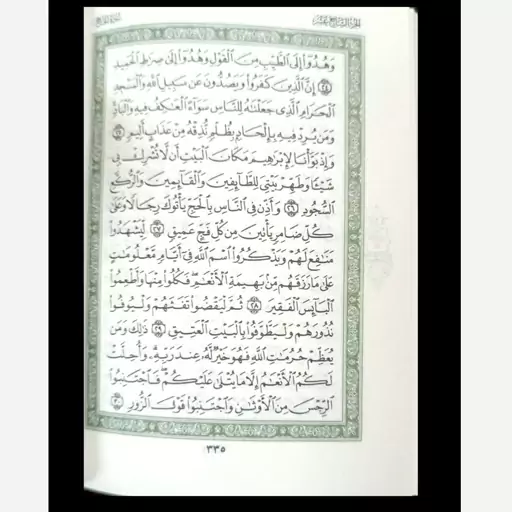 وَهُدُوٓا۟ إِلَى ٱلطَّيِّبِ مِنَ ٱلْقَوْلِ وَهُدُوٓا۟ إِلَىٰ صِرَٰطِ ٱلْحَمِيدِ
٢٤ إِنَّ ٱلَّذِينَ كَفَرُوا۟ وَيَصُدُّونَ عَن سَبِيلِ ٱللَّهِ وَٱلْمَسْجِدِ
ٱلْحَرَامِ ٱلَّذِى جَعَلْنَٰهُ لِلنَّاسِ سَوَآءً ٱلْعَٰكِفُ فِيهِ وَٱلْبَادِ
وَمَن يُرِدْ فِيهِ بِإِلْحَادٍۭ بِظُلْمٍ نُّذِقْهُ مِنْ عَذَابٍ أَلِيمٍ ٢٥
وَإِذْ بَوَّأْنَا لِإِبْرَٰهِيمَ مَكَانَ ٱلْبَيْتِ أَن لَّا تُشْرِكْ بِى
شَيْـًٔا وَطَهِّرْ بَيْتِىَ لِلطَّآئِفِينَ وَٱلْقَآئِمِينَ وَٱلرُّكَّعِ
ٱلسُّجُودِ ٢٦ وَأَذِّن فِى ٱلنَّاسِ بِٱلْحَجِّ يَأْتُوكَ رِجَالًا وَعَلَىٰ
كُلِّ ضَامِرٍ يَأْتِينَ مِن كُلِّ فَجٍّ عَمِيقٍ ٢٧ لِّيَشْهَدُوا۟
مَنَٰفِعَ لَهُمْ وَيَذْكُرُوا۟ ٱسْمَ ٱللَّهِ فِىٓ أَيَّامٍ مَّعْلُومَٰتٍ
عَلَىٰ مَا رَزَقَهُم مِّنۢ بَهِيمَةِ ٱلْأَنْعَٰمِ فَكُلُوا۟ مِنْهَا وَأَطْعِمُوا۟
ٱلْبَآئِسَ ٱلْفَقِيرَ ٢٨ ثُمَّ لْيَقْضُوا۟ تَفَثَهُمْ وَلْيُوفُوا۟
نُذُورَهُمْ وَلْيَطَّوَّفُوا۟ بِٱلْبَيْتِ ٱلْعَتِيقِ ٢٩ ذَٰلِكَ وَمَن
يُعَظِّمْ حُرُمَٰتِ ٱللَّهِ فَهُوَ خَيْرٌ لَّهُۥ عِندَ رَبِّهِۦ وَأُحِلَّتْ
لَكُمُ ٱلْأَنْعَٰمُ إِلَّا مَا يُتْلَىٰ عَلَيْكُمْ فَٱجْتَنِبُوا۟
ٱلرِّجْسَ مِنَ ٱلْأَوْثَٰنِ وَٱجْتَنِبُوا۟ قَوْلَ ٱلزُّورِ ٣٠
٣٣٥